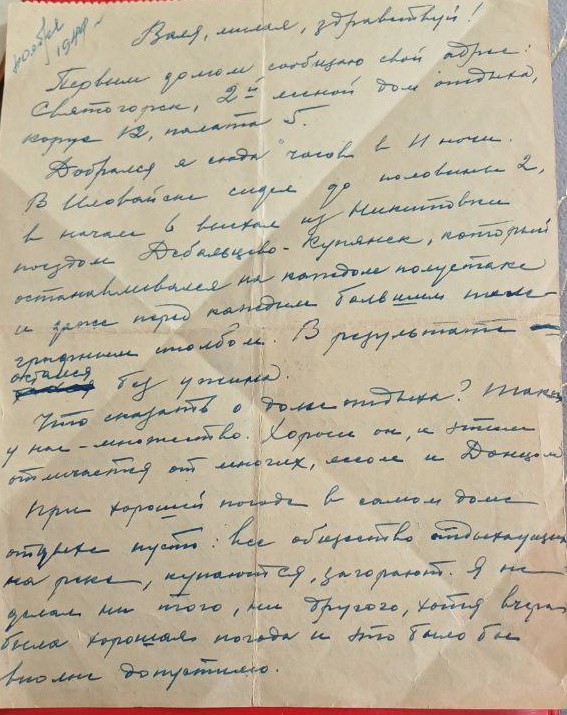 Ноябрь
1944 г
Валя, милая, здравствуй!
Первым долгом сообщаю свой адрес:
Святогорск, 2й лесной дом отдыха,
корус 12, палата 5.
Добрался я сюда часов в 11 ночи.
В Иловайске сидел до половины 2,
в начале 6 выехал из Никитовки
поездом Дебальцево-Купянск, который
останавливался на каждом полустанке
и даже перед каждым большим теле-
графным столбом. В результате
остался без ужина.
Что сказать о доме отдыха? Таких
у нас - множество. Хорош он, и этим
отличается от многих, лесом и Донцом
При хорошей погоде в самом доме
отдыха пусто: все общество отдыхающих
на реке, купаются, загорают. Я не
делал ни того, ни другого, хотя вчера
была хорошая погода и это было бы
вполне допустимо.